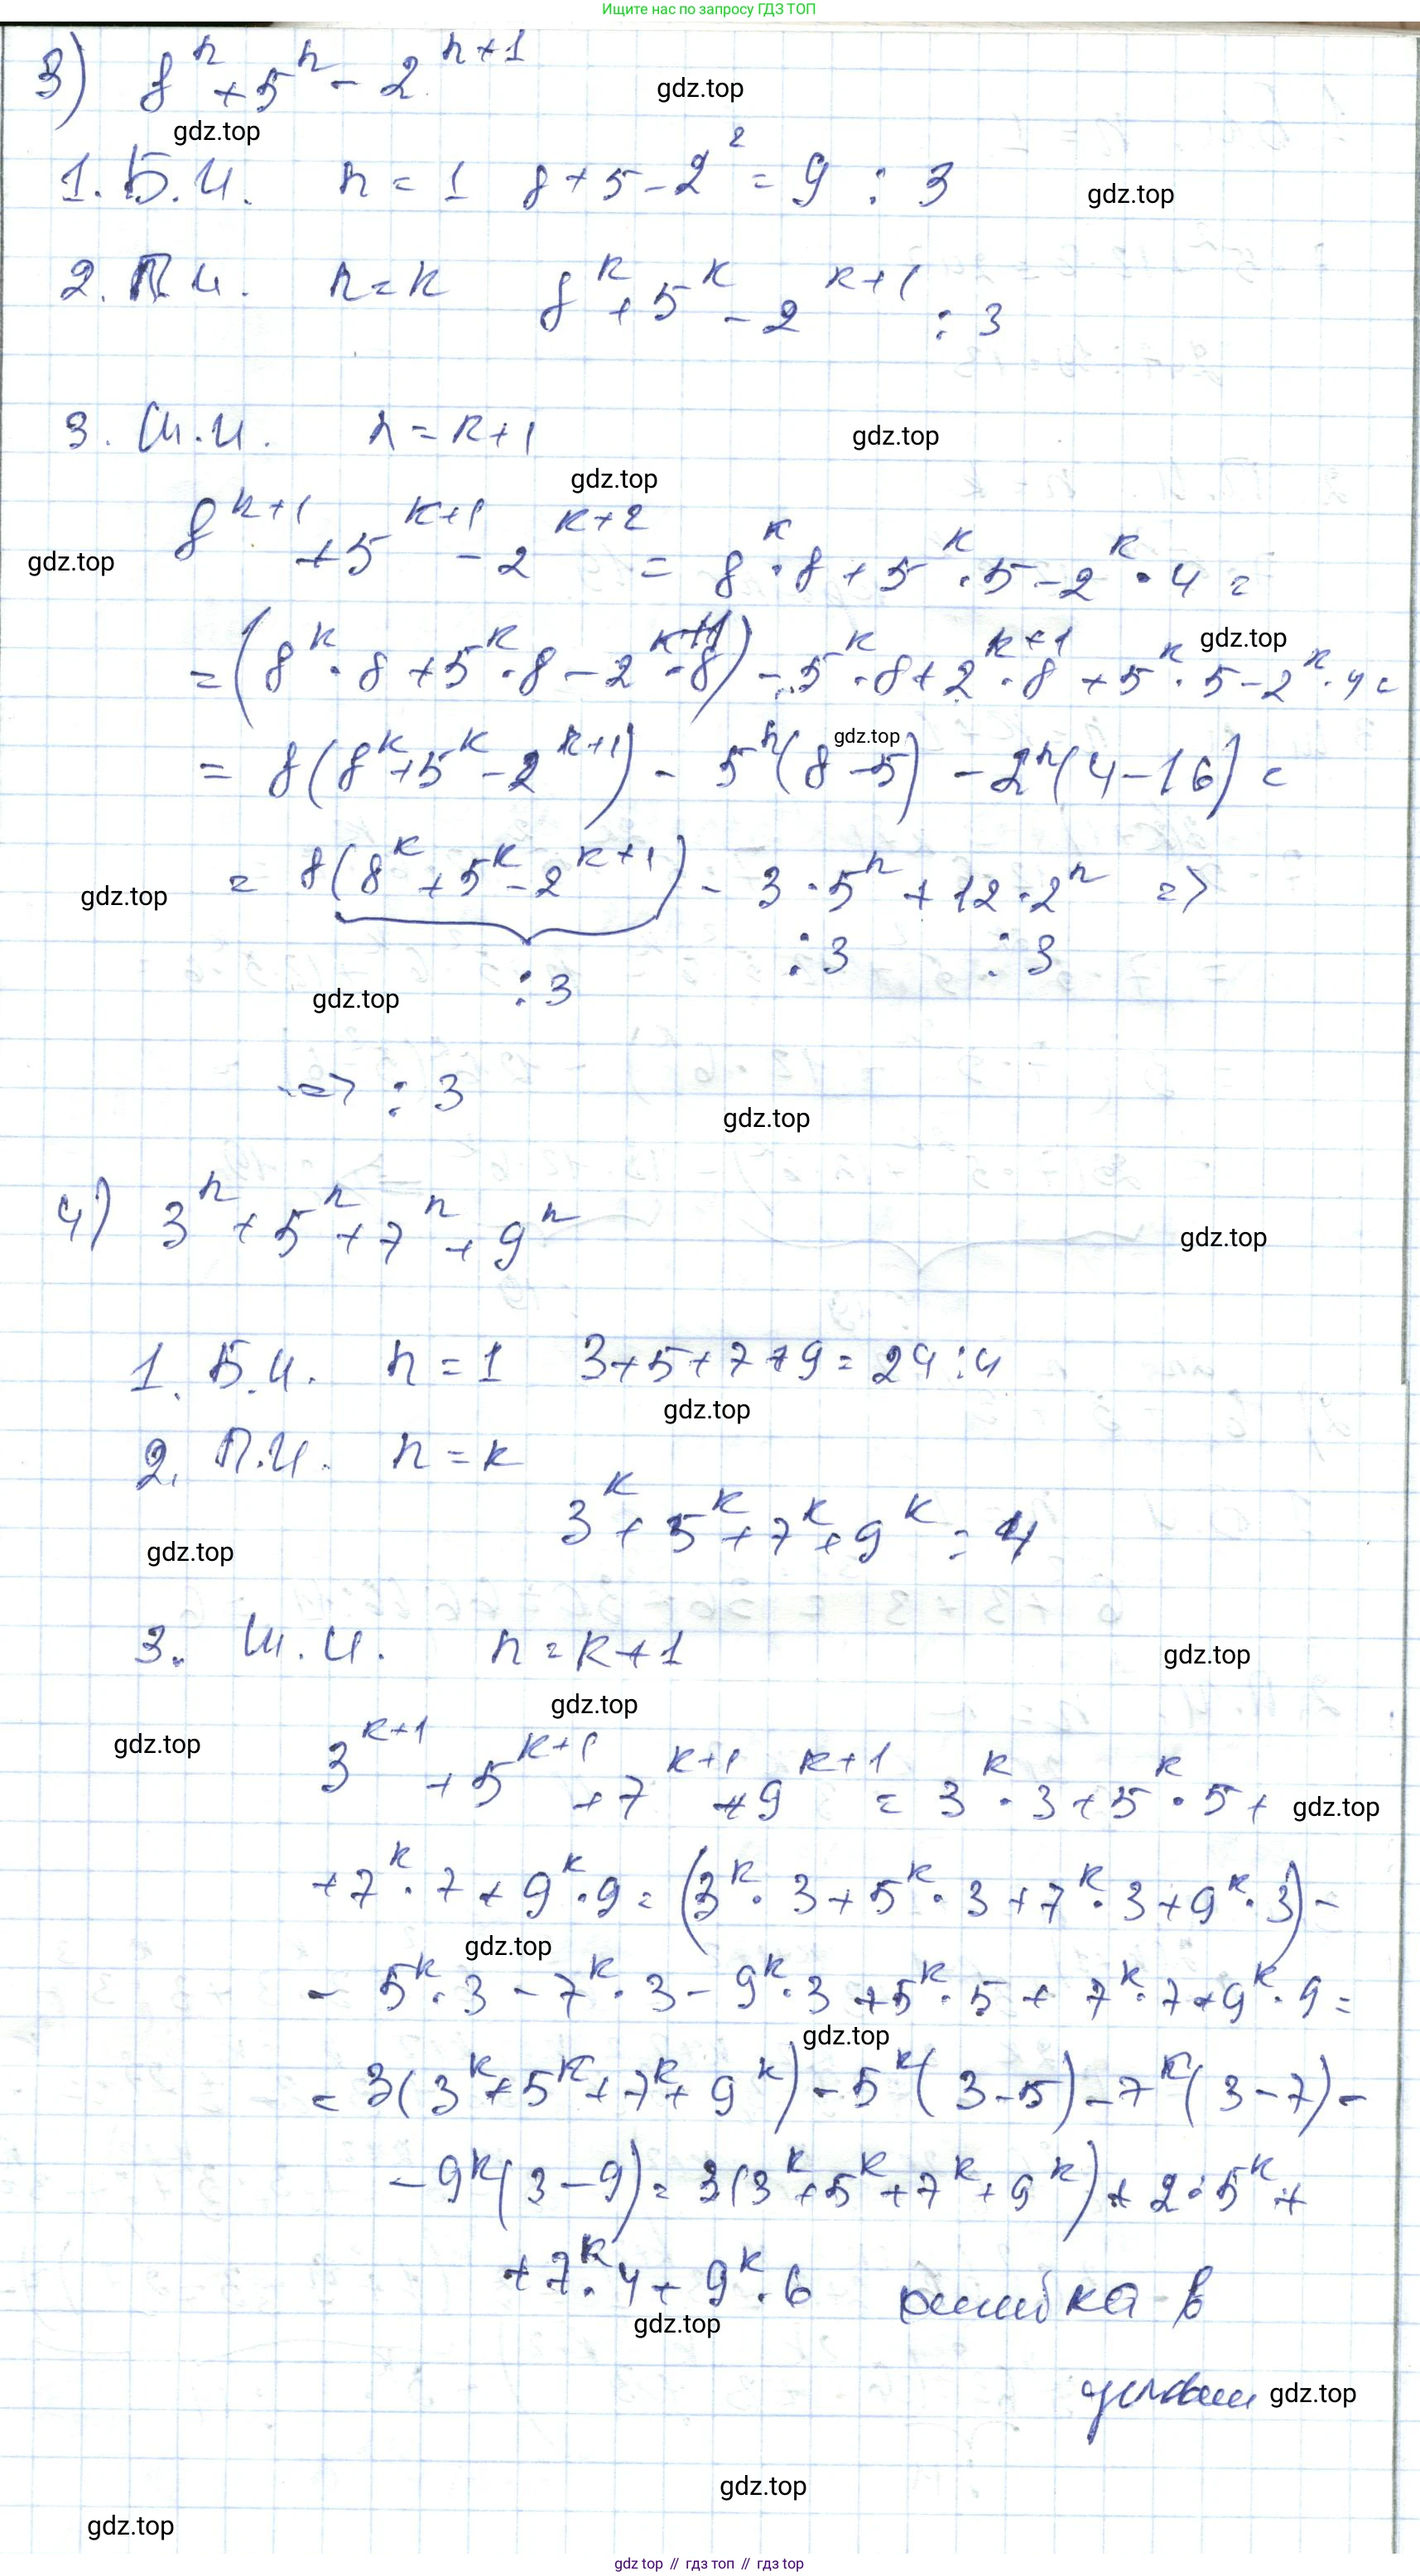 Ищите нас по запросу ГДЗ ТОП
3) 8^n + 5^n - 2^{n+1}
gdz.top
gdz.top
1. Б.И. n = 1 8 + 5 - 2^2 = 9 ⋮ 3
gdz.top
2. П.И. n = k 8^k + 5^k - 2^{k+1} ⋮ 3
3. Ш.И. n = k+1
gdz.top
gdz.top
8^{k+1} + 5^{k+1} - 2^{k+2} = 8^k · 8 + 5^k · 5 - 2^k · 4 =
gdz.top
gdz.top
= (8^k · 8 + 5^k · 8 - 2^{k+1} · 8) - 5^k · 8 + 2^{k+1} · 8 + 5^k · 5 - 2^k · 4 =
gdz.top
= 8(8^k + 5^k - 2^{k+1}) - 5^n(8 - 5) - 2^n(4 - 16) =
= 8(8^k + 5^k - 2^{k+1}) - 3 · 5^n + 12 · 2^n =>
gdz.top
⋮ 3 ⋮ 3
⋮ 3
gdz.top
=> ⋮ 3
gdz.top
4) 3^n + 5^n + 7^n + 9^n
gdz.top
1. Б.И. n = 1 3 + 5 + 7 + 9 = 24 ⋮ 4
gdz.top
2. П.И. n = k
3^k + 5^k + 7^k + 9^k ⋮ 4
gdz.top
3. Ш.И. n = k+1
gdz.top
gdz.top
gdz.top
3^{k+1} + 5^{k+1} + 7^{k+1} + 9^{k+1} = 3^k · 3 + 5^k · 5 +
gdz.top
+ 7^k · 7 + 9^k · 9 = (3^k · 3 + 5^k · 3 + 7^k · 3 + 9^k · 3) -
gdz.top
- 5^k · 3 - 7^k · 3 - 9^k · 3 + 5^k · 5 + 7^k · 7 + 9^k · 9 =
gdz.top
= 3(3^k + 5^k + 7^k + 9^k) - 5^k(3 - 5) - 7^k(3 - 7) -
- 9^k(3 - 9) = 3(3^k + 5^k + 7^k + 9^k) + 2 · 5^k +
+ 7^k · 4 + 9^k · 6 ошибка в
gdz.top
условии gdz.top
gdz.top
gdz.top
gdz top // гдз топ // gdz top